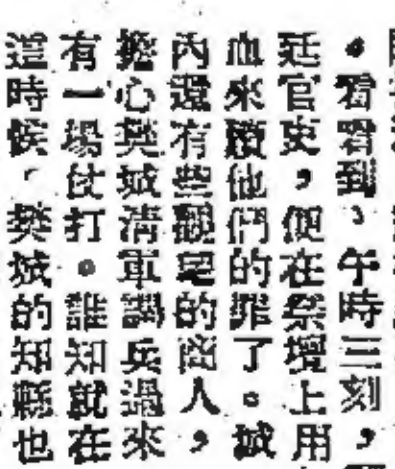 。看看到、午時三刻,
廷官吏,便在祭壇上用
血來贖他們的罪了。城
內還有些觀望的商人,
擔心樊城清軍調兵過來,
有一場仗打。誰知就在
這時候,樊城的知縣也